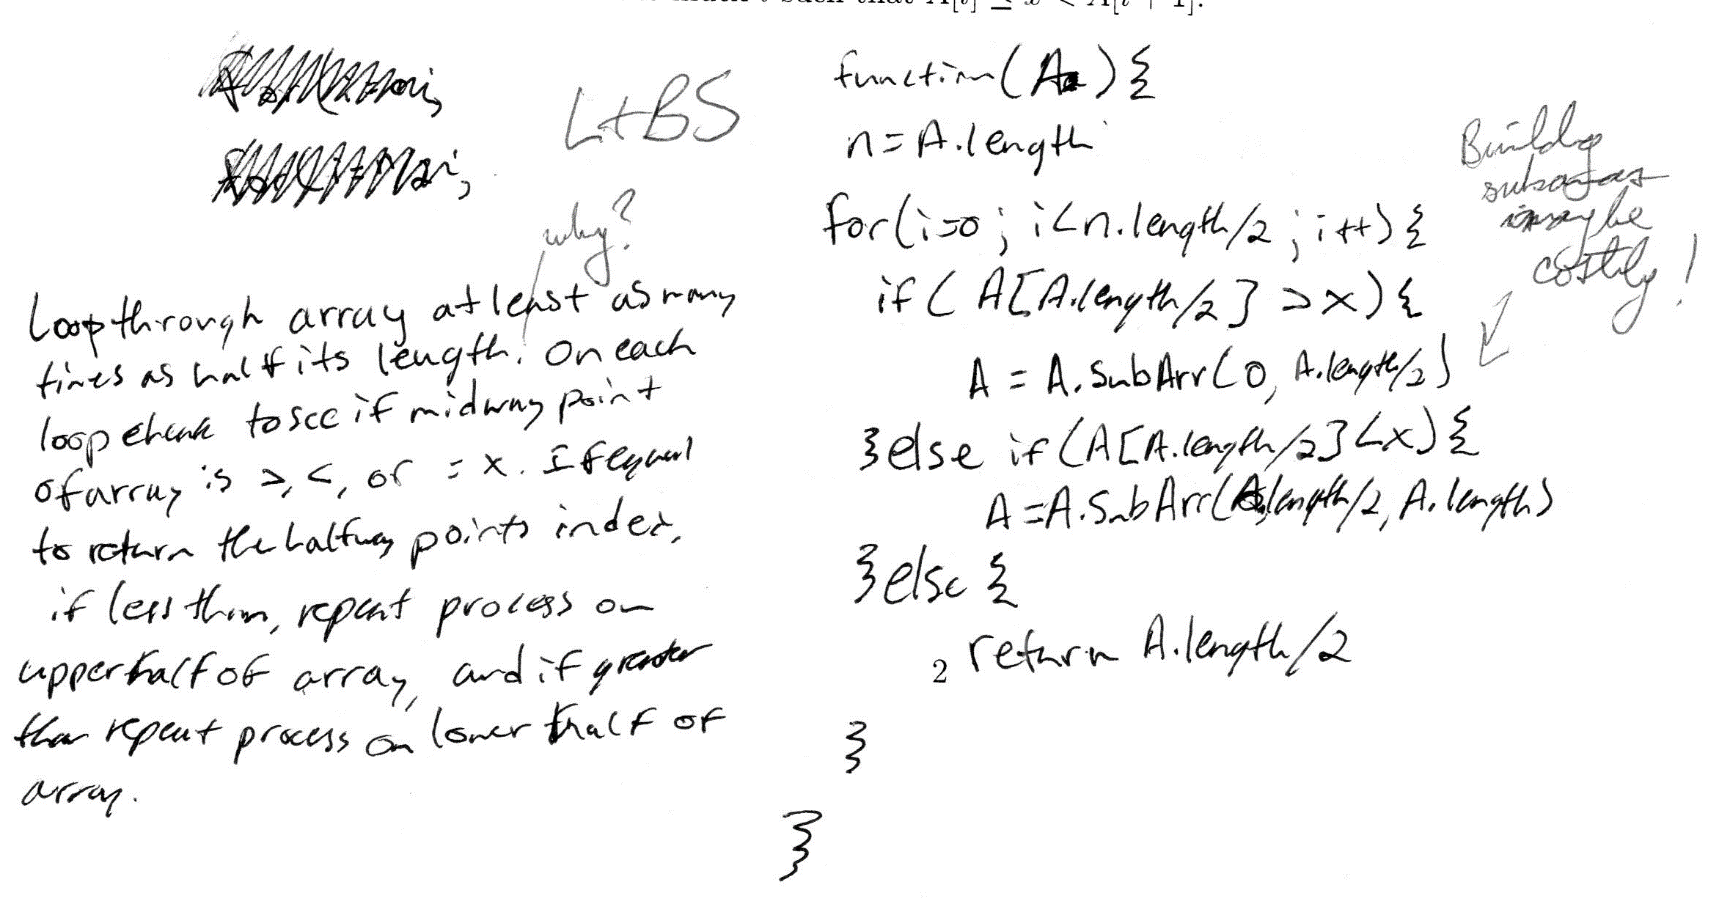 such that A[i] ≤ x < A[i + 1].
L+BS
why?
Loop through array at least as many
times as half its length. On each
loop check to see if midway point
of array is >, <, or = x. If equal
to return the halfway points index,
if less than, repeat process on
upper half of array, and if greater
than repeat process on lower half of
array.
function(A){
n=A.length
for(i=0; i<n.length/2; i++){
if( A[A.length/2] > x){
A = A.SubArr(0, A.length/2)
}else if(A[A.length/2]<x){
A=A.SubArr(A.length/2, A.length)
}else {
return A.length/2
2
}
}
Building
subarrays
may be
costly!